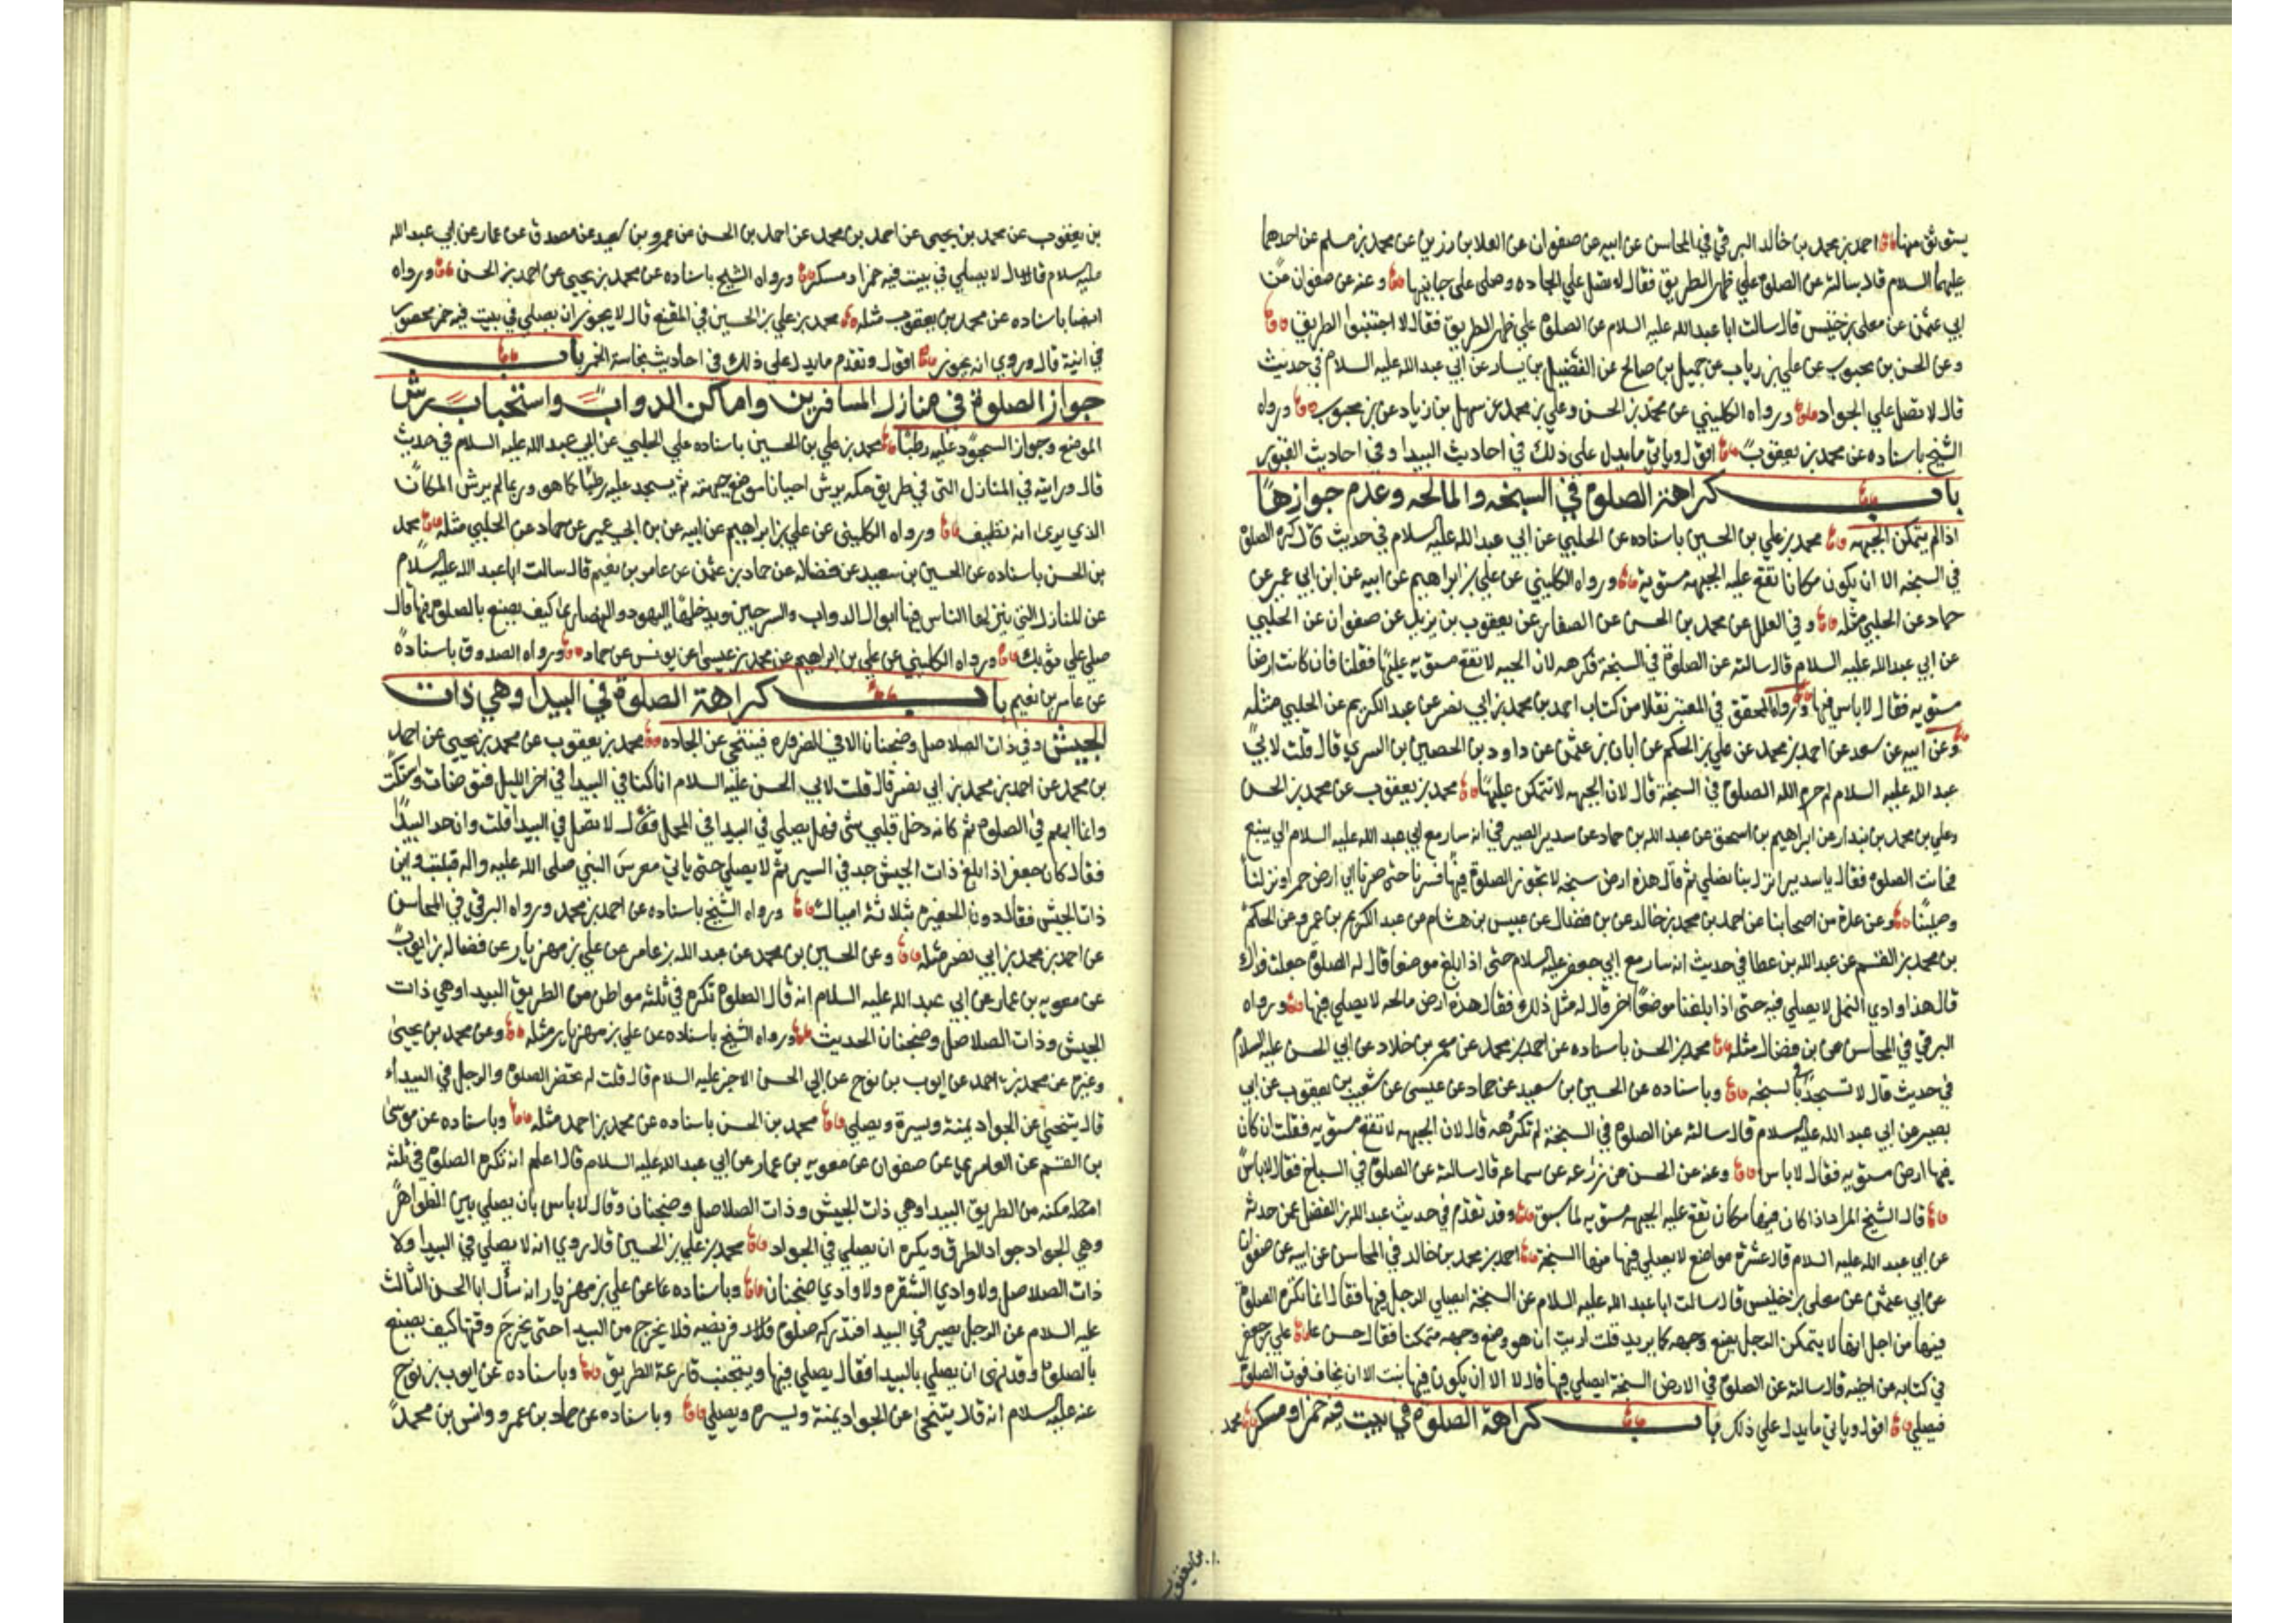 يستوثق منها احمد بن محمد بن خالد البرقي في المحاسن عن ابيه عن صفوان عن العلا بن رزين عن محمد بن مسلم عن احدهما
عليهما السلام قال سالته عن الصلوة علي ظهر الطريق فقال لا تصل علي الجاده وصلي علي جانبيها وعنه عن صفوان عن
ابي عثمن عن معلى بن خنيس قال سالت ابا عبد الله عليه السلام عن الصلوة علي ظهر الطريق فقال لا اجتنبوا الطريق
وعن الحسن بن محبوب عن علي بن رياب عن جميل بن صالح عن الفضيل بن يسار عن ابي عبد الله عليه السلام في حديث
قال لا تصل علي الجواد ورواه الكليني عن محمد بن الحسن وعلي بن محمد عن سهل بن زياد عن بن محبوب ورواه
الشيخ باسناده عن محمد بن يعقوب اقول وياتي ما يدل علي ذلك في احاديث البيدا وفي احاديث القبور
باب كراهة الصلوة في السبخه والمالحه وعدم جوازها
اذا لم يتمكن الجبهه محمد بن علي بن الحسين باسناده عن الحلبي عن ابي عبد الله عليه السلام في حديث قال كره الصلوة
في السبخه الا ان يكون مكانا تقع عليه الجبهه مستوية ورواه الكليني عن علي بن ابراهيم عن ابيه عن ابن ابي عمير عن
حماد عن الحلبي مثله وفي العلل عن محمد بن الحسن عن الصفار عن يعقوب بن يزيد عن صفوان عن الحلبي
عن ابي عبد الله عليه السلام قال سالته عن الصلوة في السبخة فكرهه لان الجبهه لا تقع مستويه عليها فقلنا فان كانت ارضا
مستويه فقال لا باس فيها ورواه المحقق في المعتبر نقلا من كتاب احمد بن محمد بن ابي نصر عن عبد الكريم عن الحلبي مثله
وعن ابيه عن سعد عن احمد بن محمد عن علي بن الحكم عن ابان بن عثمن عن داود بن الحصين بن السري قال قلت لابي
عبد الله عليه السلام لم حرم الله الصلوة في السبخة قال لان الجبهه لا تتمكن عليها محمد بن يعقوب عن محمد بن الحسن
وعلي بن محمد بن بندار عن ابراهيم بن اسحق عن عبد الله بن حماد عن سدير الصيرفي انه سار مع ابي عبد الله عليه السلام الي ينبع
فحانت الصلوه فقال يا سدير انزل بنا نصلي ثم قال هذه ارض سبخه لا تجوز الصلوة فيها فسرنا حتى صرنا الي ارض حمراء ونزلنا
وصلينا وعن عدة من اصحابنا عن احمد بن محمد بن خالد عن بن فضال عن عبيس بن هشام عن عبد الكريم بن عمرو عن الحكم
بن محمد بن القسم عن عبد الله بن عطا في حديث انه سار مع ابي جعفر عليه السلام حتى اذا بلغ موضعا قال له الصلوة جعلت فداك
قال هذا وادي النمل لا يصلي فيه حتى اذا بلغنا موضعا اخر قال له مثل ذلك فقال هذه ارض مالحه لا يصلي فيها ورواه
البرقي في المحاسن عن بن فضال مثله محمد بن الحسن باسناده عن احمد بن محمد عن معمر بن خلاد عن ابي الحسن عليه السلام
في حديث قال لا تسجد في السبخه وباسناده عن الحسين بن سعيد عن حماد عن عيسى عن شعيب بن يعقوب عن ابي
بصير عن ابي عبد الله عليه السلام قال سالته عن الصلوة في السبخة لم تكرهه قال لان الجبهه لا تقع مستويه فقلت ان كان
فيها ارض مستويه فقال لا باس وعنه عن الحسن عن زرعه عن سماعه قال سالته عن الصلوة في السباخ فقال لا باس
قال الشيخ المراد اذا كان فيها مكان تقع عليه الجبهه مستويه لما سبق وقد تقدم في حديث عبد الله بن الفضل عن حدثه
عن ابي عبد الله عليه السلام قال عشرة مواضع لا يصلي فيها منها السبخة احمد بن محمد بن خالد في المحاسن عن ابيه عن صفوان
عن ابي عثمن عن معلى بن خنيس قال سالت ابا عبد الله عليه السلام عن السبخة ايصلي الرجل فيها فقال انما تكره الصلوة
فيها من اجل انها لا يتمكن الرجل يضع وجهه كما يريد قلت ارايت ان هو وضع وجهه متمكنا فقال حسن علي بن جعفر
في كتابه عن اخيه قال سالته عن الصلوة في الارض السبخة ايصلي فيها قال لا الا ان يكون فيها نبت الا ان يخاف فوت الصلوة
فيصلي اقول وياتي ما يدل علي ذلك باب كراهة الصلوة في بيت فيه خمر او مسكر محمد
بن يعقوب
بن يعقوب عن محمد بن يحيى عن احمد بن محمد عن احمد بن الحسن عن عمرو بن سعيد عن مصدق عن عمار عن ابي عبد الله
عليه السلام قال لا يصلي في بيت فيه خمر او مسكر ورواه الشيخ باسناده عن محمد بن يحيي عن احمد بن الحسن ورواه
ايضا باسناده عن محمد بن يعقوب مثله محمد بن علي بن الحسين في المقنع قال لا يجوز ان يصلي في بيت فيه خمر محصور
في انية قال وروي انه يجوز اقول وتقدم ما يدل علي ذلك في احاديث نجاسة الخمر باب
جواز الصلوة في منازل المسافرين واماكن الدواب واستحباب رش
الموضع وجواز السجود عليه رطبا محمد بن علي بن الحسين باسناده علي الحلبي عن ابي عبد الله عليه السلام في حديث
قال ورايته في المنازل التي في طريق مكه يرش احيانا موضع جبهته ثم يسجد عليه رطبا كما هو وربما لم يرش المكان
الذي يرى انه نظيف ورواه الكليني عن علي بن ابراهيم عن ابيه عن بن ابي عمير عن حماد عن الحلبي مثله محمد
بن الحسن باسناده عن الحسين بن سعيد عن فضاله عن حماد بن عثمن عن عامر بن نعيم قال سالت ابا عبد الله عليه السلام
عن المنازل التي ينزلها الناس فيها ابوال الدواب والسرجين ويدخلها اليهود والنصارى كيف يصنع بالصلوة فيها قال
صلي علي ثوبك ورواه الكليني عن علي بن ابراهيم عن محمد بن عيسى عن يونس عن حماد ورواه الصدوق باسناده
عن عامر بن نعيم باب كراهة الصلوة في البيدا وهي ذات
الجيش وفي ذات الصلاصل وضجنان الا في الضروره فيتنحي عن الجاده محمد بن يعقوب عن محمد بن يحيي عن احمد
بن محمد عن احمد بن محمد بن ابي نصر قال قلت لابي الحسن عليه السلام انا كنا في البيدا في اخر الليل فتوضات واستكت
وانا اهم في الصلوة ثم كانه دخل قلبي شئ فهل يصلي في البيدا في المحمل فقال لا تصل في البيدا قلت واين حد البيدا
فقال كان جعفر اذا بلغ ذات الجيش جد في السير ثم لا يصلي حتى ياتي معرس النبي صلى الله عليه واله قلت واين
ذات الجيش فقال دون الحفيره بثلاثة اميال ورواه الشيخ باسناده عن احمد بن محمد ورواه البرقي في المحاسن
عن احمد بن محمد بن ابي نصر مثله وعن الحسين بن محمد عن عبد الله بن عامر عن علي بن مهزيار عن فضاله بن ايوب
عن معويه بن عمار عن ابي عبد الله عليه السلام انه قال الصلوة تكره في ثلثه مواطن من الطريق البيدا وهي ذات
الجيش وذات الصلاصل وضجنان الحديث ورواه الشيخ باسناده عن علي بن مهزيار مثله وعن محمد بن يحيى
وغيره عن محمد بن احمد عن ايوب بن نوح عن ابي الحسن الاخير عليه السلام قال قلت له تحضر الصلوة والرجل في البيداء
قال يتنحى عن الجواد يمنة ويسرة ويصلي محمد بن الحسن باسناده عن محمد بن احمد مثله وباسناده عن موسى
بن القسم عن العامري عن صفوان عن معويه بن عمار عن ابي عبد الله عليه السلام قال اعلم انه تكره الصلوة في ثلثة
امكنه من الطريق البيدا وهي ذات الجيش وذات الصلاصل وضجنان وقال لا باس بان يصلي بين الظواهر
وهي الجواد جواد الطرق ويكره ان يصلي في الجواد محمد بن علي بن الحسين قال روي انه لا يصلي في البيدا ولا
ذات الصلاصل ولا وادي الشقره ولا وادي ضجنان وباسناده عن علي بن مهزيار انه سأل ابا الحسن الثالث
عليه السلام عن الرجل يصير في البيدا فتدركه صلوة فريضه فلا يخرج من البيدا حتى يخرج وقتها كيف يصنع
بالصلوة وقد نهى ان يصلي بالبيدا فقال يصلي فيها ويتجنب قارعة الطريق وباسناده عن ايوب بن نوح
عنه عليه السلام انه قال يتنحى عن الجواد يمنة ويسره ويصلي وباسناده عن حماد بن عمرو وانس بن محمد